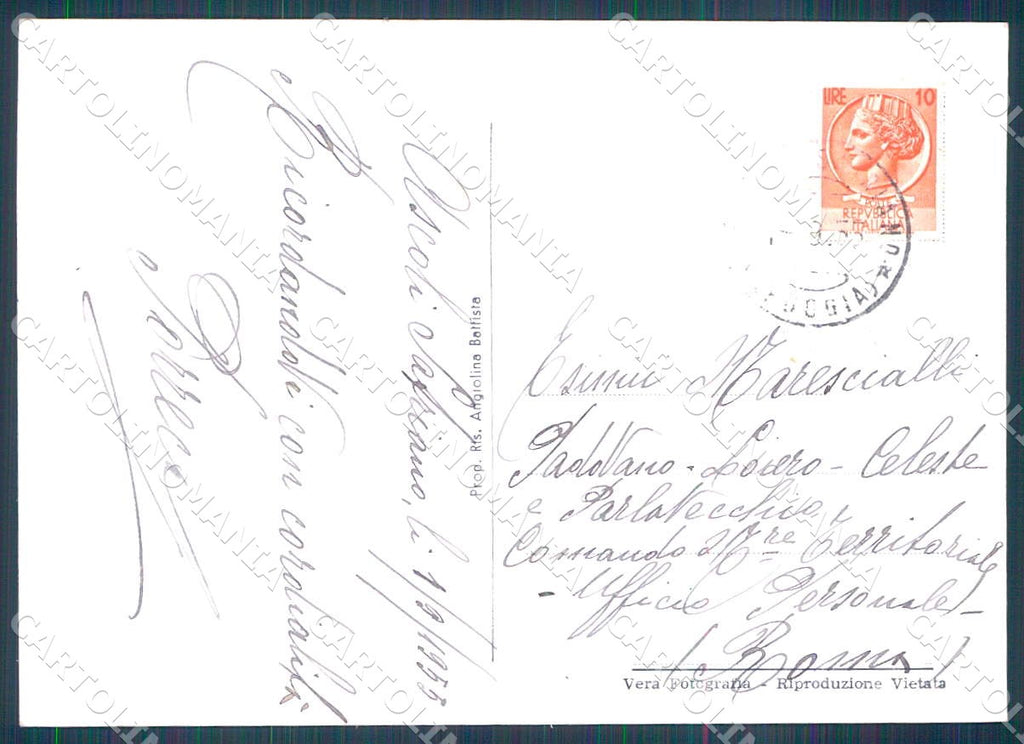 Ascoli Satriano, li 1/9/1955
Ricordandovi con cordialità
Prop. Ris. Angiolina Battista
LIRE 10
POSTE
REPVBBLICA
ITALIANA
(FOGGIA)
Esimi Marescialli
Paddvano - Loiero - Celeste
e Parlavecchio
Comando Mre Territoriale
- Ufficio Personale -
(Roma)
Vera Fotografia - Riproduzione Vietata
CARTOLINOMANIA